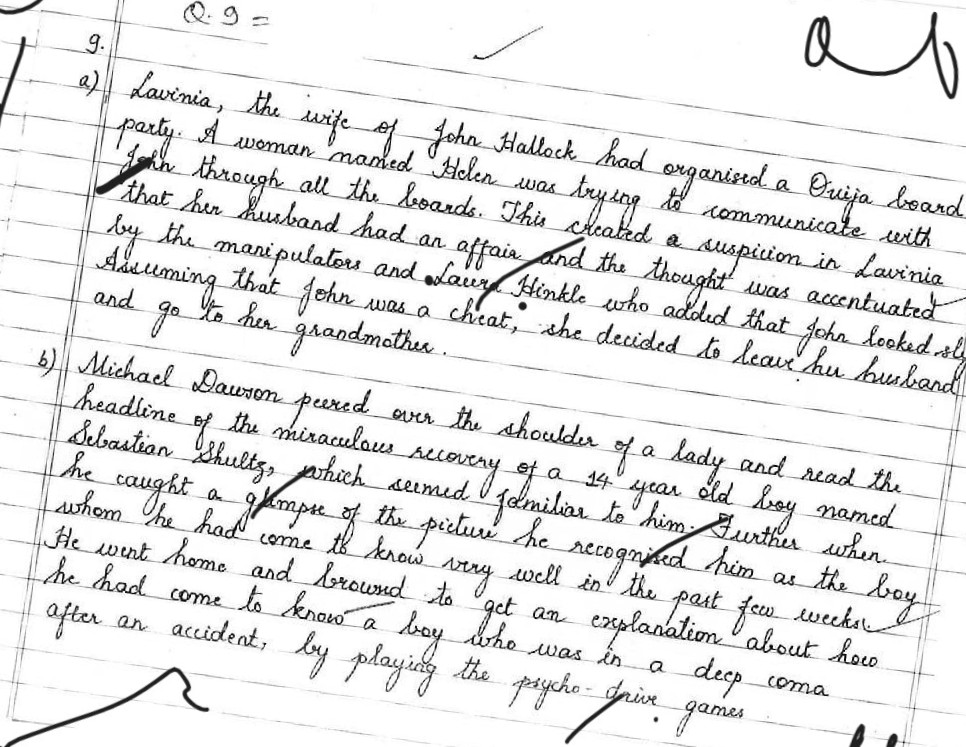 Q. 9 =
9.
a) Lavinia, the wife of John Hallock had organised a Ouija board
party. A woman named Helen was trying to communicate with
John through all the boards. This created a suspicion in Lavinia
that her husband had an affair and the thought was accentuated
by the manipulators and Laura Hinkle who added that John looked sly
Assuming that John was a cheat, she decided to leave her husband
and go to her grandmother.
b) Michael Dawson peered over the shoulder of a lady and read the
headline of the miraculous recovery of a 14 year old boy named
Sebastian Shultz, which seemed familiar to him. Further when
he caught a glimpse of the picture he recognised him as the boy
whom he had come to know very well in the past few weeks.
He went home and browsed to get an explanation about how
he had come to know a boy who was in a deep coma
after an accident, by playing the psycho-drive games